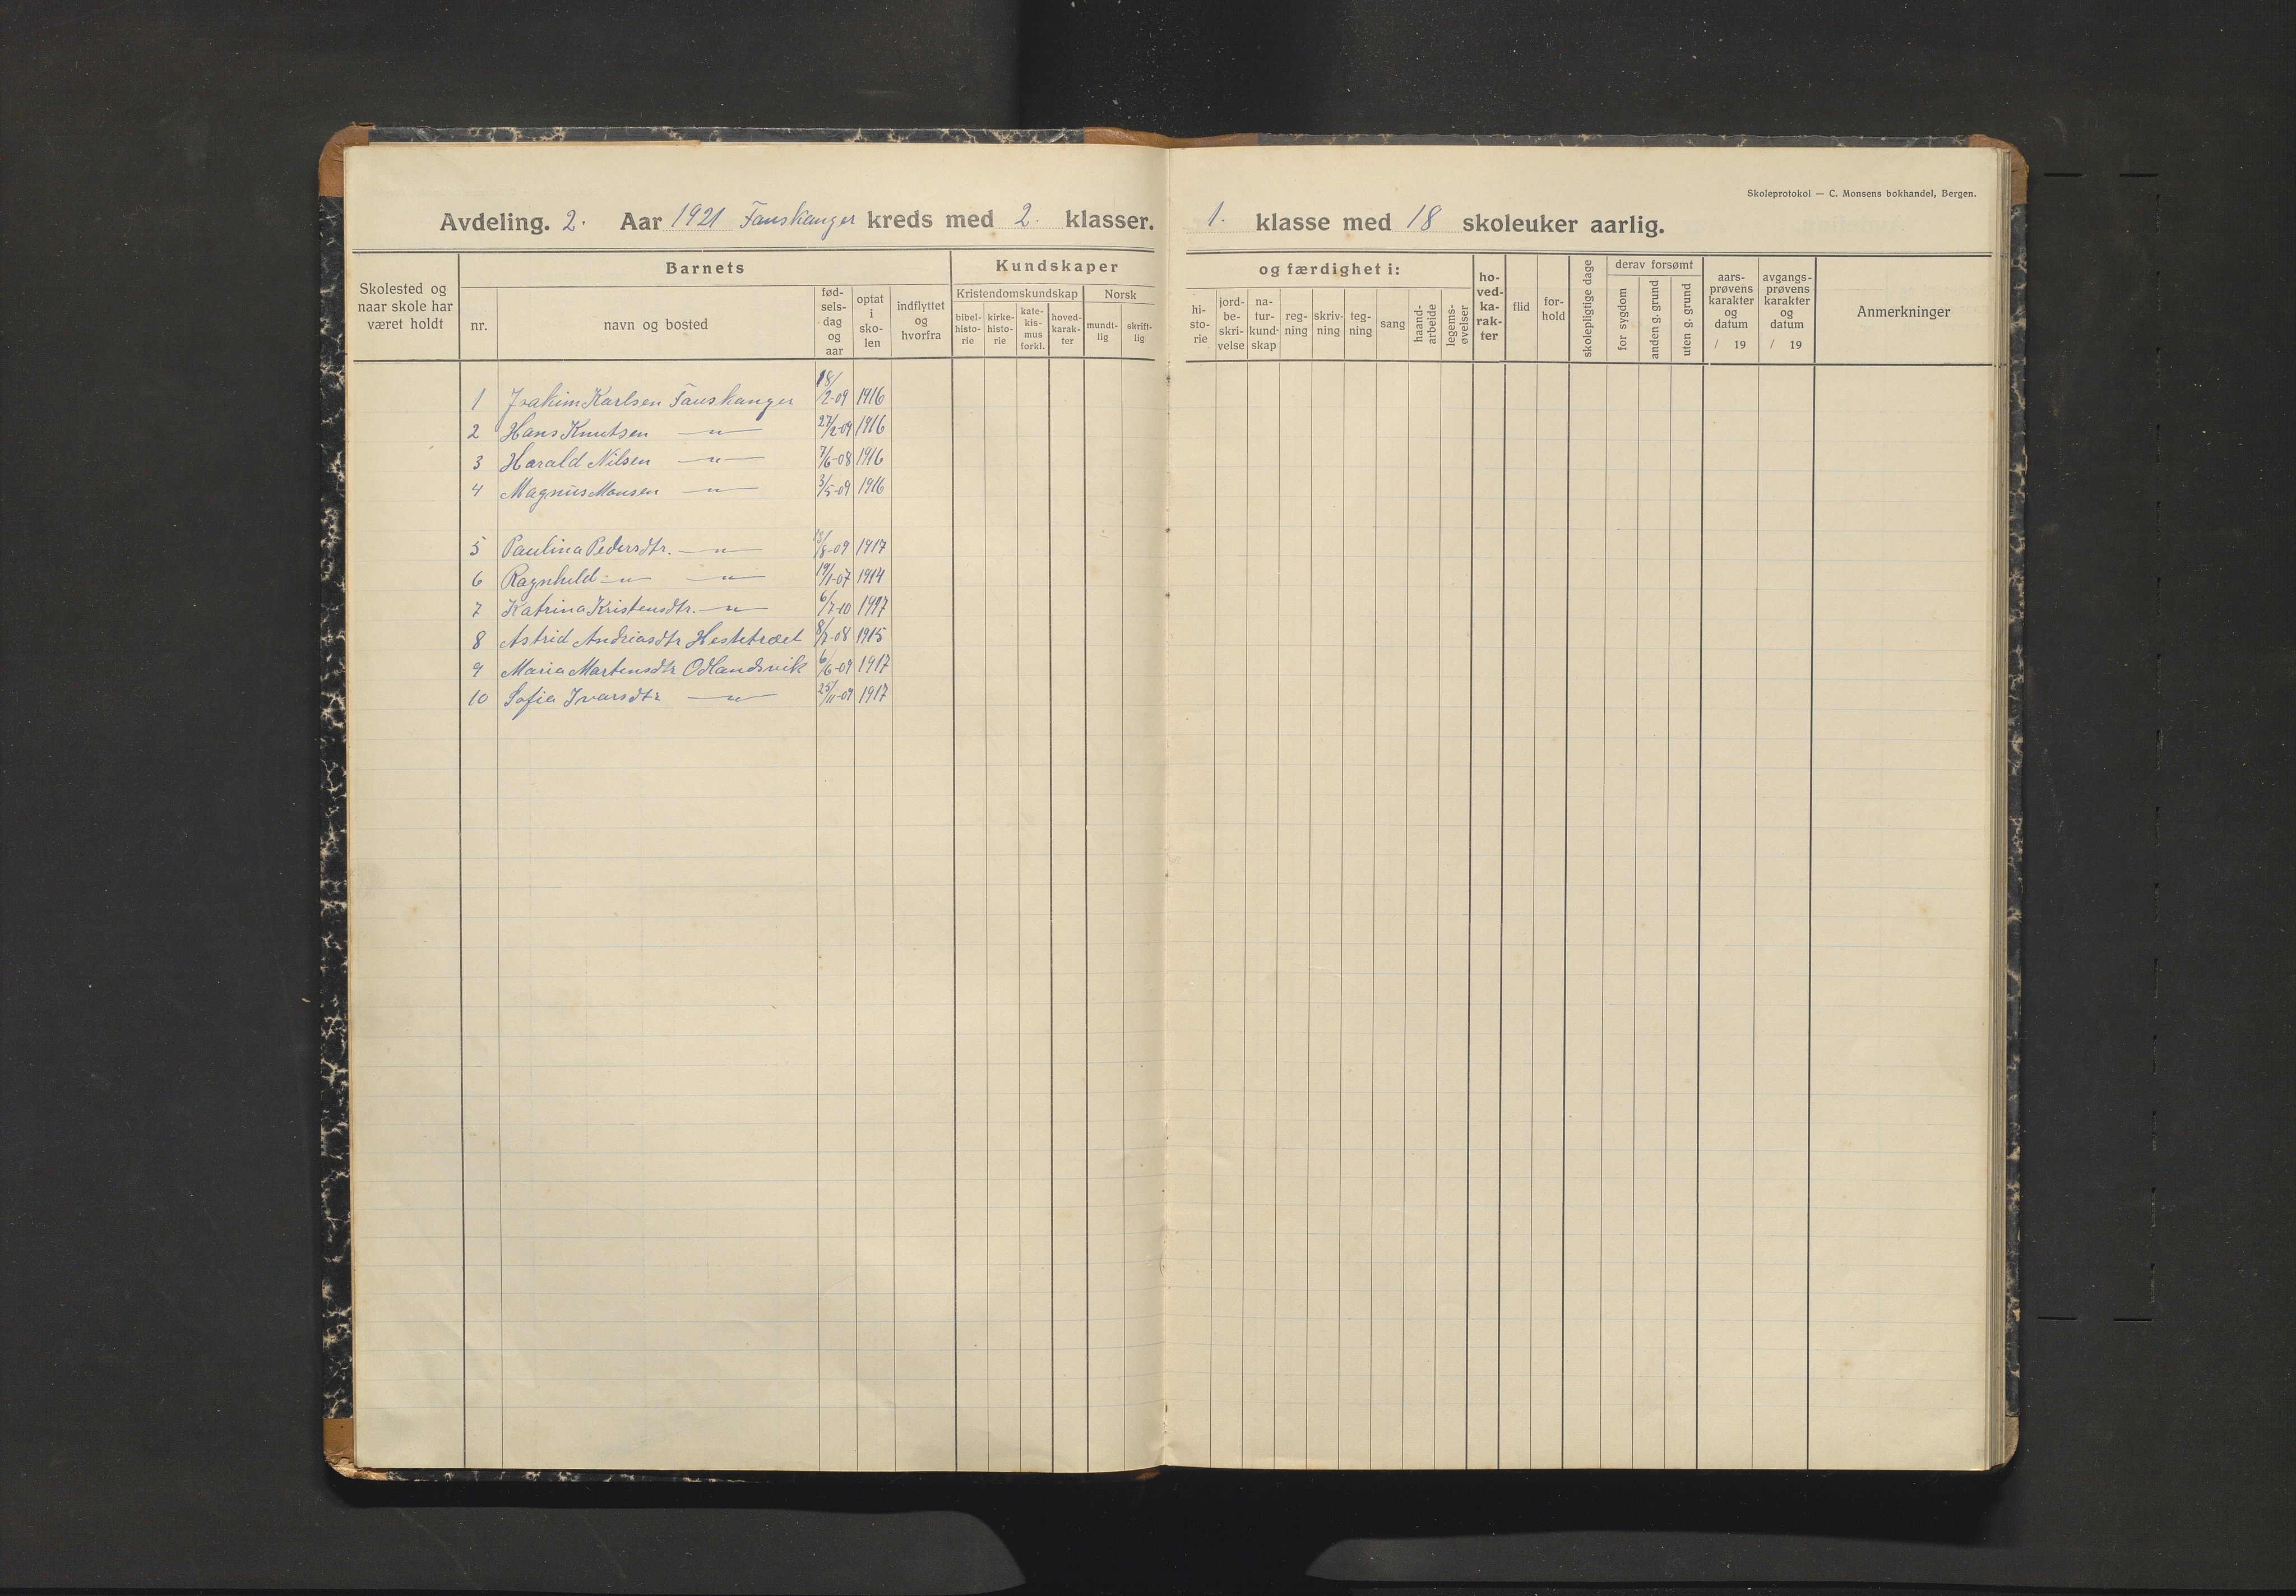 Skoleprotokol — C. Monsens bokhandel, Bergen.
Avdeling. 2. Aar 1921 Fauskanger kreds med 2. klasser. 1. klasse med 18 skoleuker aarlig.
Skolested og naar skole har været holdt
Barnets
nr.
navn og bosted
fød-sels-dag og aar
optat i sko-len
indflyttet og hvorfra
Kundskaper
Kristendomskundskap
bibel-histo-rie
kirke-histo-rie
kate-kis-mus forkl.
hoved-karak-ter
Norsk
mundt-lig
skrift-lig
og færdighet i:
hi-sto-rie
jord-be-skri-velse
na-tur-kund-skap
reg-ning
skriv-ning
teg-ning
sang
haand-arbeide
legems-øvelser
ho-ved-ka-rak-ter
flid
for-hold
skolepligtige dage
derav forsømt
for sygdom
anden g. grund
uten g. grund
aars-prøvens karakter og datum / 19
avgangs-prøvens karakter og datum / 19
Anmerkninger
1 Joakim Karlsen Fauskanger 18/2-09 1916
2 Hans Knutsen —"— 27/2-09 1916
3 Harald Nilsen —"— 7/6-08 1916
4 Magnus Monsen —"— 3/5-09 1916
5 Paulina Pedersdtr. —"— 13/8-09 1917
6 Ragnhild —"— —"— 19/1-07 1914
7 Katrina Kristensdtr. —"— 6/7-10 1917
8 Astrid Andreasdtr Hestetræet 8/2-08 1915
9 Maria Martensdtr Odlandsvik 6/6-09 1917
10 Sofia Ivarsdtr —"— 25/11-09 1917